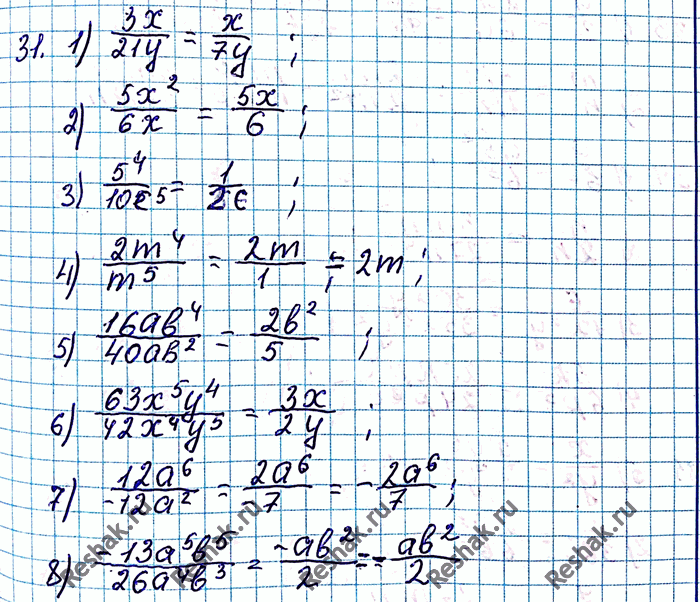 31. 1) 3x/21y = x/7y ;
2) 5x²/6x = 5x/6 ;
3) 5⁴/10c⁵ = 1/2c ;
4) 2m⁴/m⁵ = 2m/1 = 2m ;
5) 16ab⁴/40ab² = 2b²/5 ;
6) 63x⁵y⁴/42x⁴y⁵ = 3x/2y ;
7) 12a⁶/-12a² = 2a⁶/-7 = -2a⁶/7 ;
8) -13a⁵b⁵/26a⁴b³ = -ab²/2 = -ab²/2
Reshak.ru Reshak.ru Reshak.ru Reshak.ru